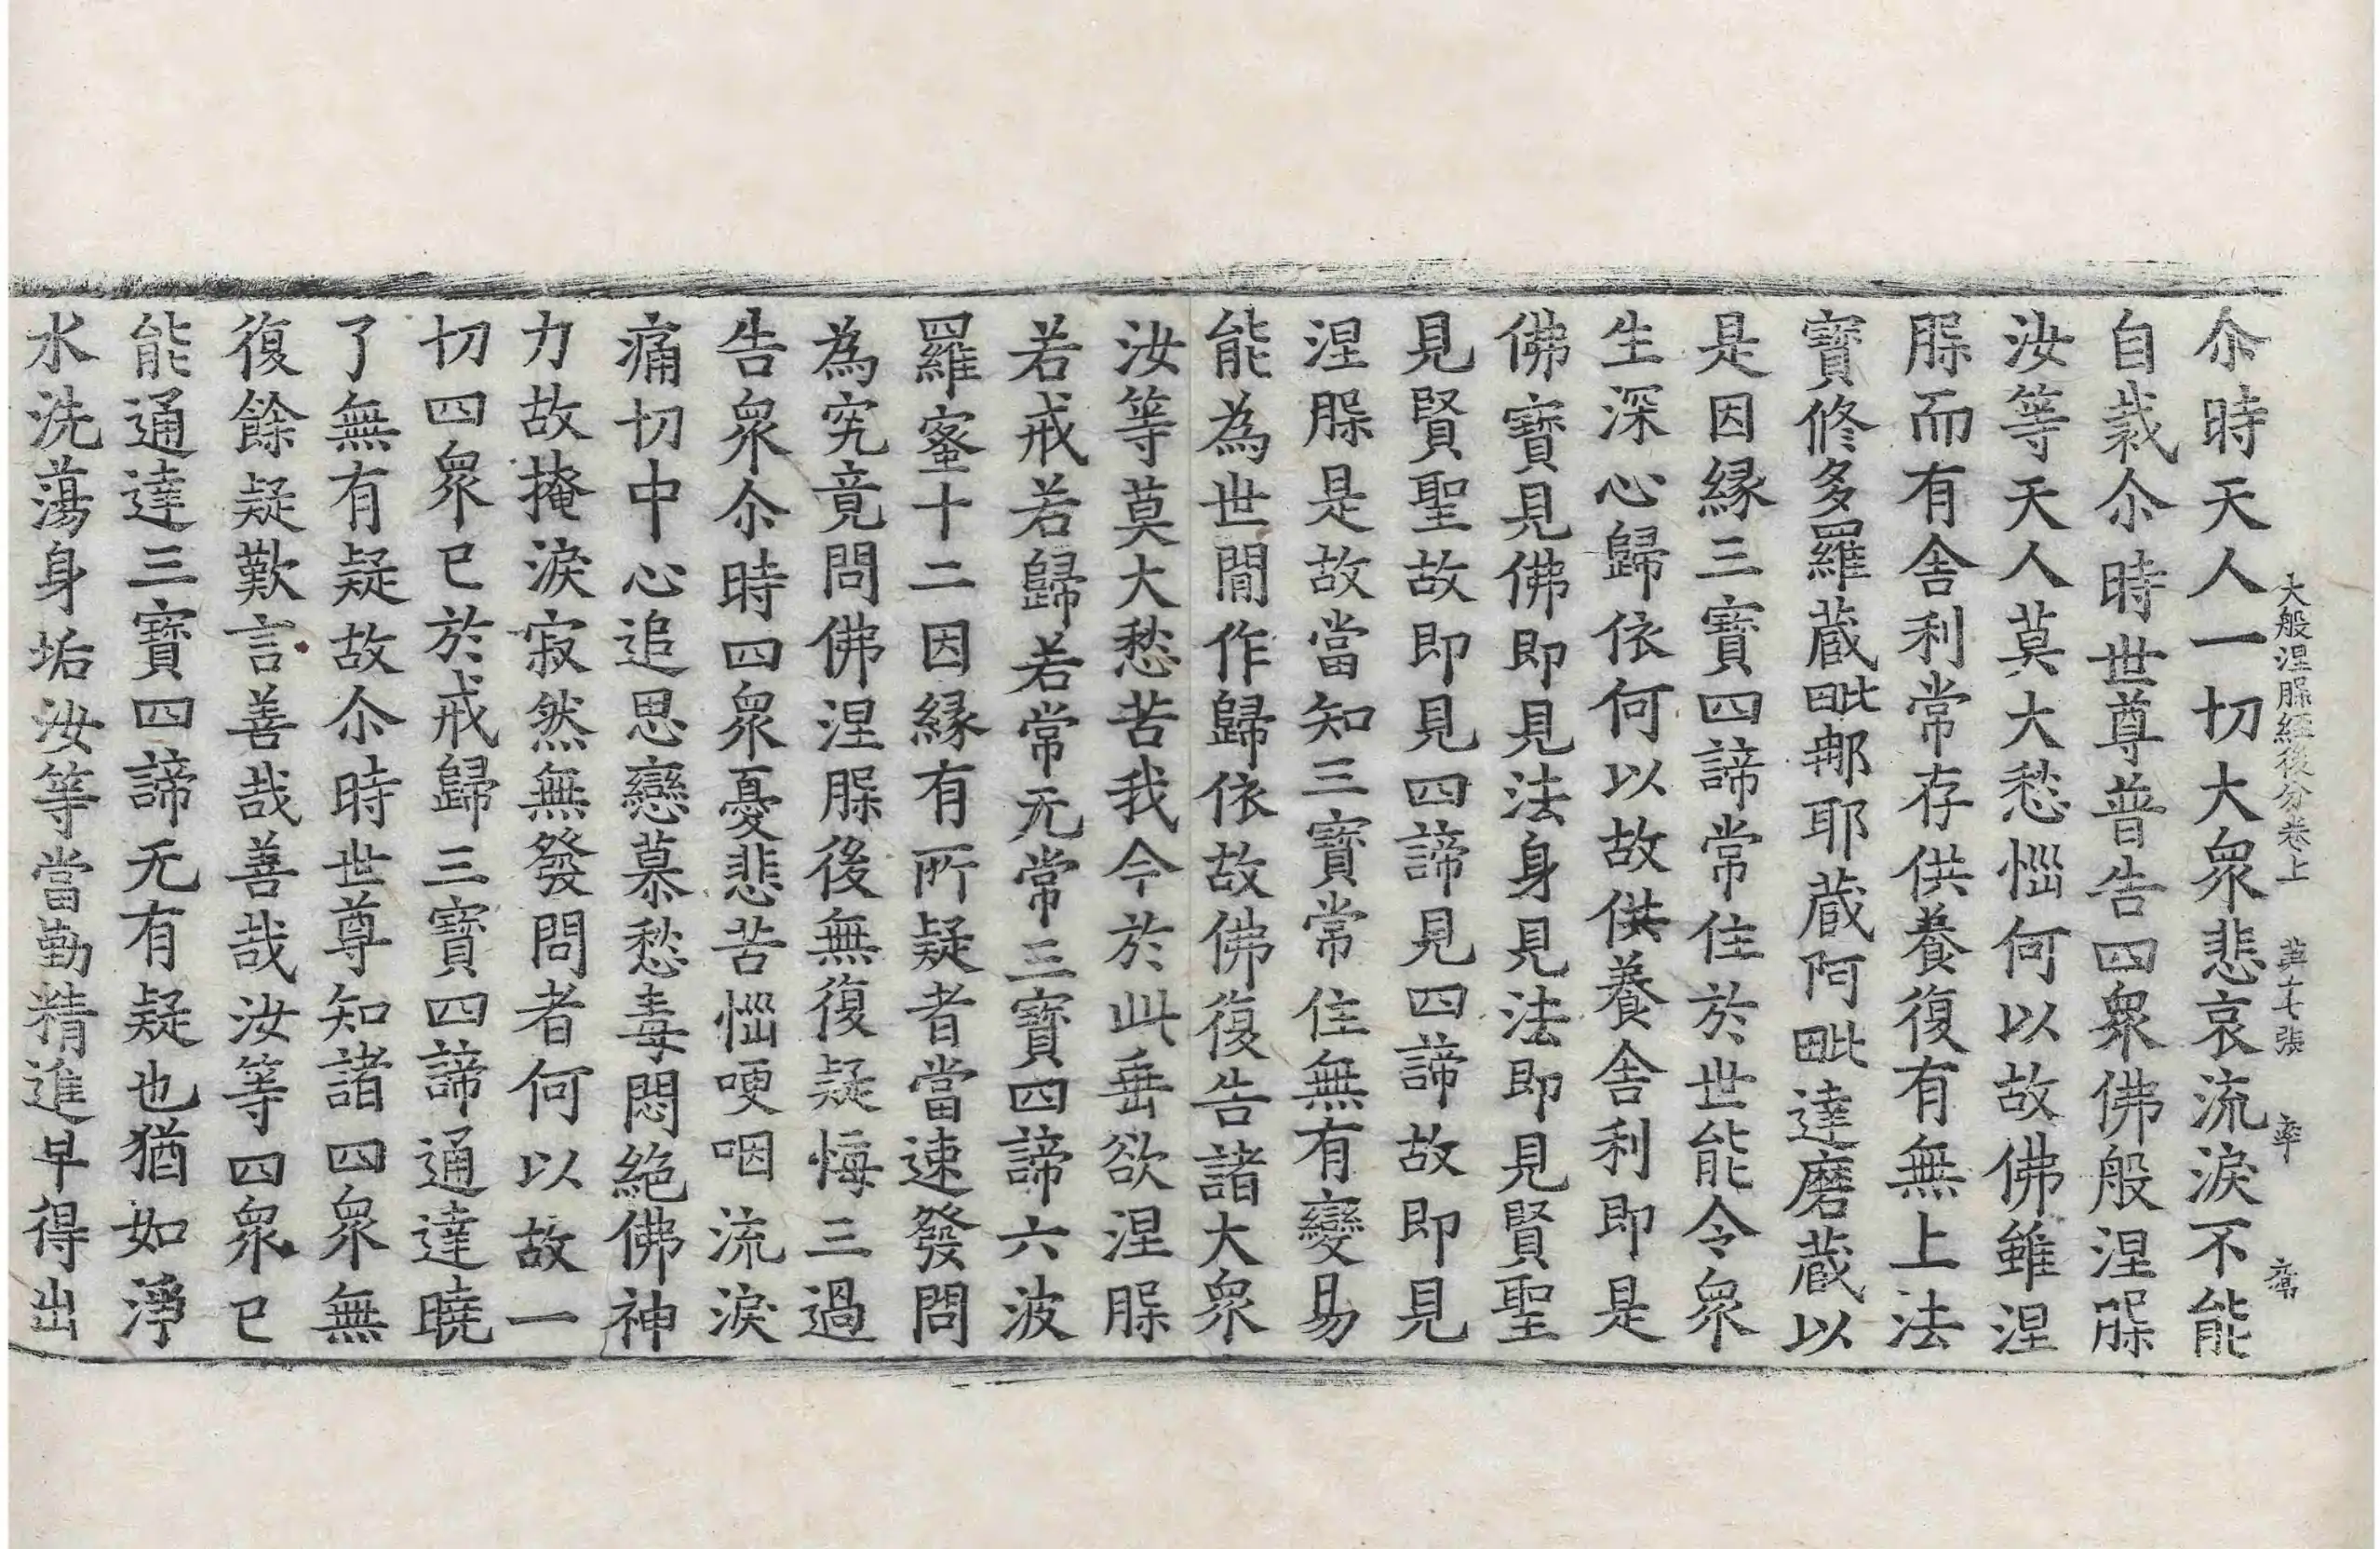 大般涅槃經後分卷上　第十七張　率
尒時天人一切大衆悲哀流淚不能
自裁尒時世尊普告四衆佛般涅槃
汝等天人莫大愁惱何以故佛雖涅
槃而有舍利常存供養復有無上法
寶修多羅藏毗郍耶藏阿毗達磨藏以
是因縁三寶四諦常住於世能令衆
生深心歸依何以故供養舍利即是
佛寶見佛即見法身見法即見賢聖
見賢聖故即見四諦見四諦故即見
涅槃是故當知三寶常住無有變易
能為世間作歸依故佛復告諸大衆
汝等莫大愁苦我今於此垂欲涅槃
若戒若歸若常无常三寶四諦六波
羅蜜十二因縁有所疑者當速發問
為究竟問佛涅槃後無復疑悔三過
告衆尒時四衆憂悲苦惱哽咽流淚
痛切中心追思戀慕愁毒悶絕佛神
力故掩淚寂然無發問者何以故一
切四衆已於戒歸三寶四諦通達曉
了無有疑故尒時世尊知諸四衆無
復餘疑歎言善哉善哉汝等四衆已
能通達三寶四諦无有疑也猶如淨
水洗蕩身垢汝等當勤精進早得出